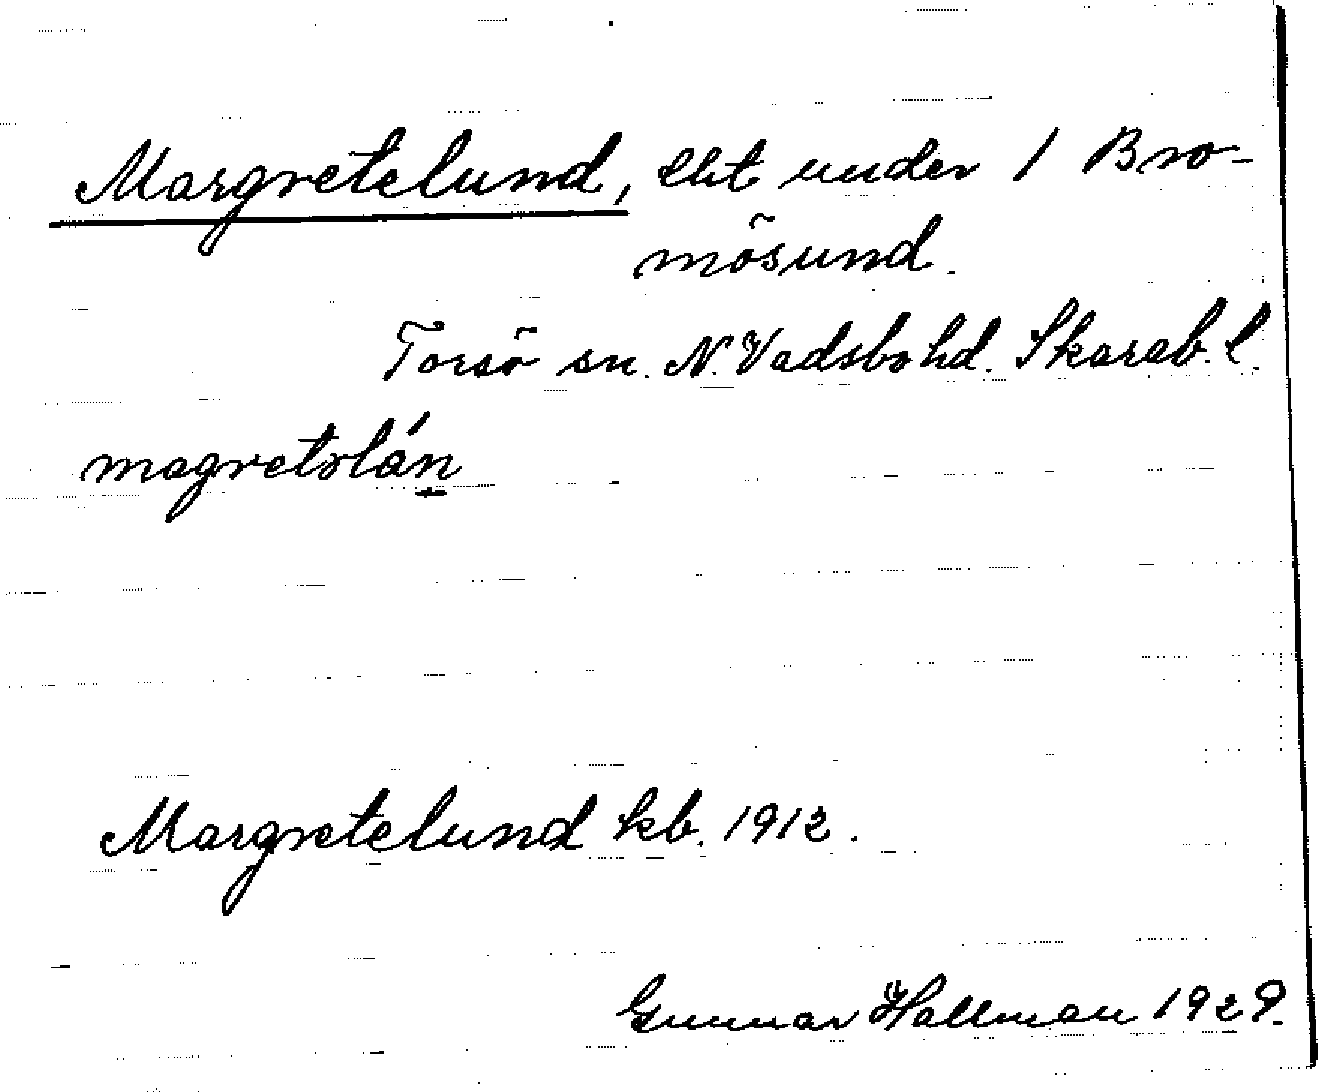 Margretelund, lht under 1 Bro-
mösund.
Torsö sn. N. Vadsbo hd. Skarab. l.
magretslán
Margretelund kb. 1912.
Gunnar Hallman 1929.